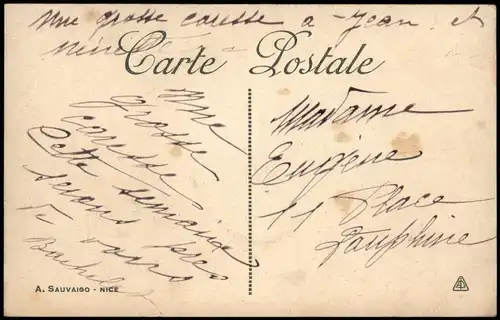 Une grosse caresse a Jean et
Néné
Carte Postale
Une
grosse
caresse
Cette semaine
serons près
de vous
Madame
Eugène
11 Place
Dauphine
A. SAUVAIGO - NICE